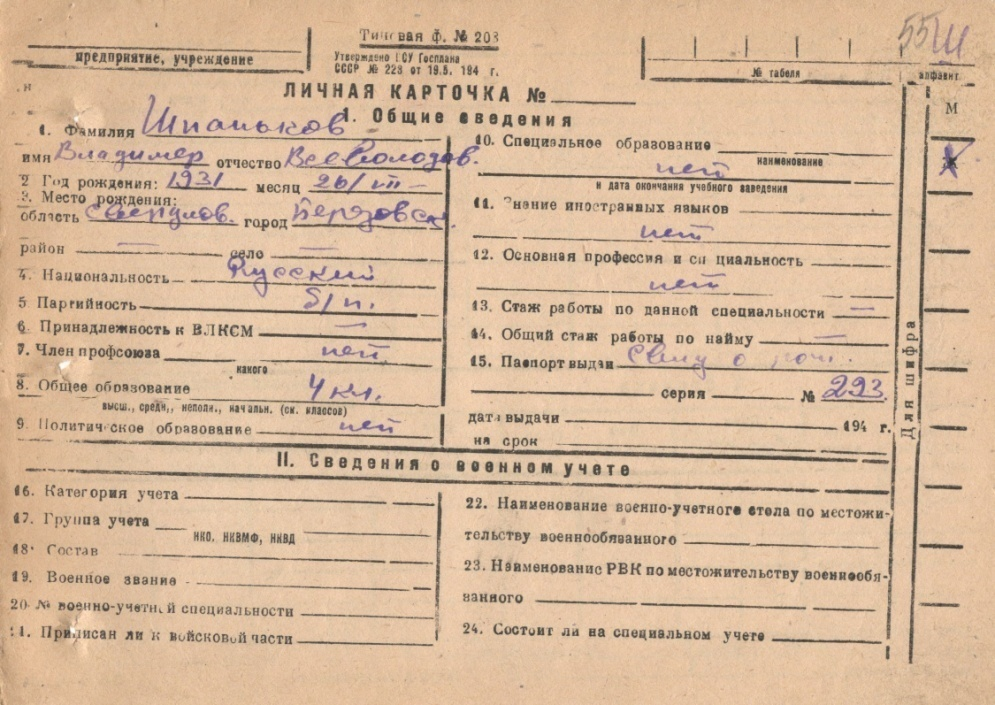 предприятие, учреждение
Типовая ф. № 203
Утверждено ЦСУ Госплана
СССР № 223 от 19.5. 194 г.
№ табеля
55 Ш
алфавит
ЛИЧНАЯ КАРТОЧКА №
I. Общие сведения
1. Фамилия Шпаньков
имя Владимер отчество Всеволодов.
2 Год рождения: 1931 месяц 26/III –
3. Место рождения:
область Свердлов. город Березовск.
район — село —
4. Национальность Русский
5 Партийность б/п.
6. Принадлежность к ВЛКСМ —
7. Член профсоюза нет
какого
8. Общее образование 4 кл.
высш., средн., неполн., начальн. (ск. классов)
9. Политическое образование нет
10. Специальное образование
наименование
нет
и дата окончания учебного заведения
11. Знание иностранных языков
нет
12. Основная профессия и специальность
нет
13. Стаж работы по данной специальности —
14. Общий стаж работы по найму —
15. Паспорт выдан Свид о рож.
серия № 293.
дата выдачи 194 г.
на срок
М
Для шифра
II. Сведения о военном учете
16. Категория учета
17. Группа учета
НКО, НКВМФ, НКВД
18. Состав
19. Военное звание
20. № военно-учетной специальности
21. Приписан ли к войсковой части
22. Наименование военно-учетного стола по местожи-
тельству военнообязанного
23. Наименование РВК по местожительству военнообя-
занного
24. Состоит ли на специальном учете